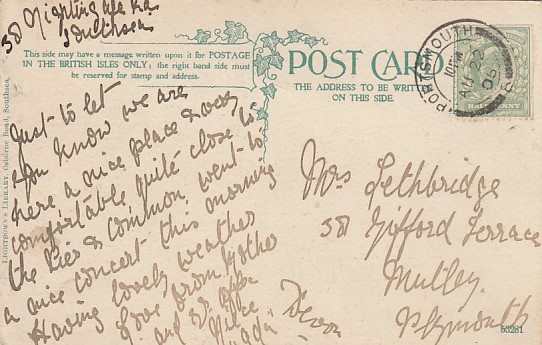 38 Nightingale Rd
Southsea
This side may have a message written upon it for POSTAGE
IN THE BRITISH ISLES ONLY; the right hand side must
be reserved for stamp and address.
Just to let
you know we are
here a nice place & very
comfortable quite close to
the Pier & Common, went to
a nice concert this morning
Having lovely weather
Love from Mother
and
POST CARD
THE ADDRESS TO BE WRITTEN
ON THIS SIDE.
PORTSMOUTH
AU 22
06
HALFPENNY
Mrs Lethbridge
38 Gifford Terrace
Mutley
Plymouth
Devon
LIGHTBOWN'S LIBRARY, Osborne Road, Southsea.
53281